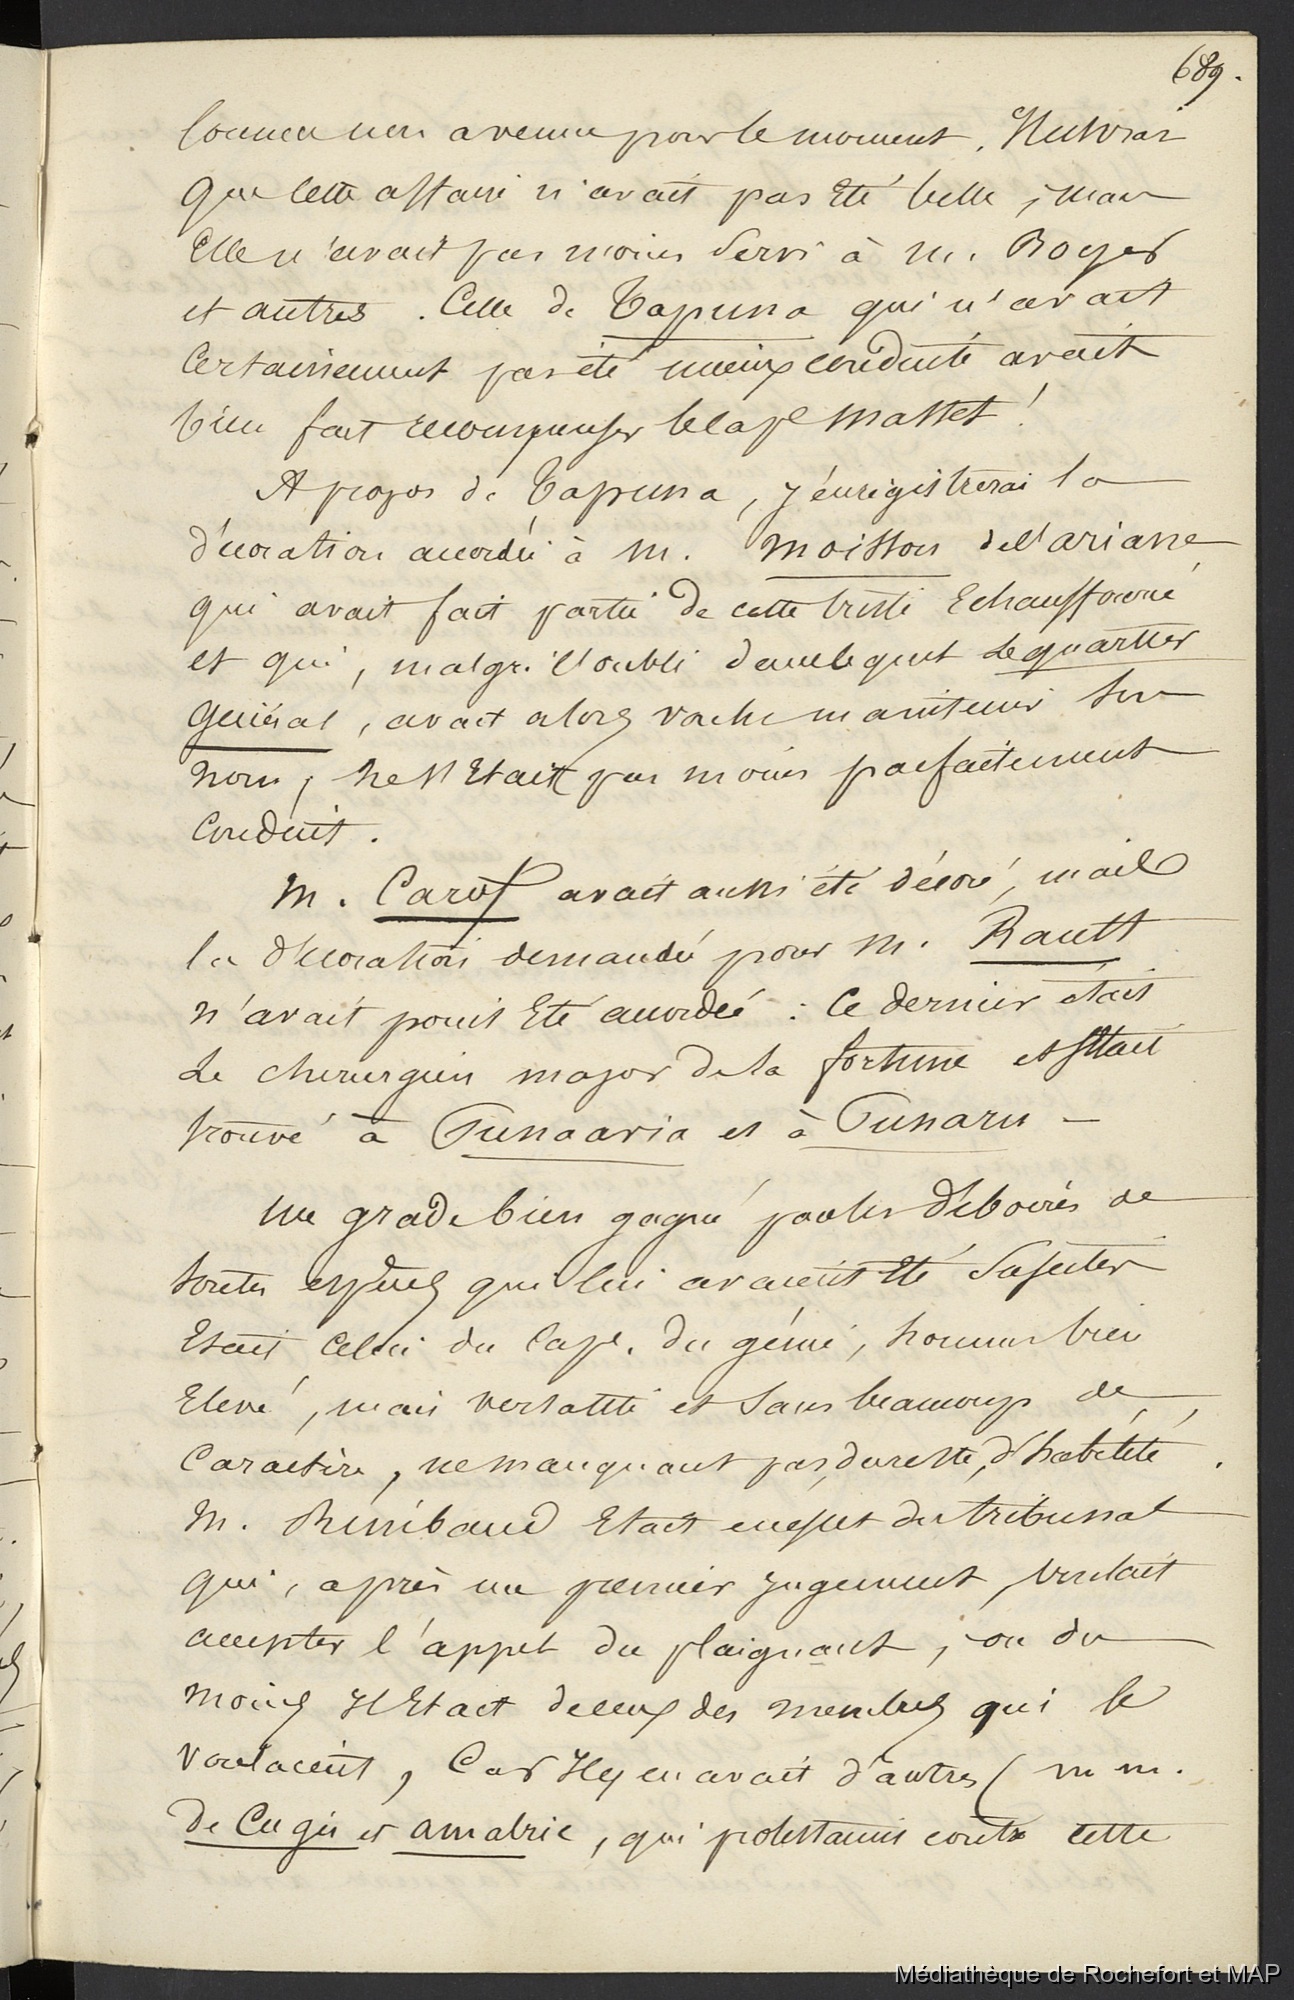 689.
comme non avenu pour le moment. Il est vrai
que cette affaire n'avait pas été belle, mais
Elle n'avait pas moins servi à m. Boyer
et autres. Celle de Tapuna qui n'avait
Certainement pas été mieux conduite avait
bien fait récompenser le cape Mattet!
A propos de Tapuna, j'enregistrerai la
décoration accordée à m. Moisson de l'ariane
qui avait fait partie de cette triste Echauffourée
et qui, malgré l'oubli dans lequel Le quartier
Général, avait alors voulu maintenir son
nom, ne s'Etait pas moins parfaitement
Conduit.
M. Carof avait aussi été décoré, mais
la décoration demandée pour m. Rault
n'avait point Eté accordée : Ce dernier était
Le chirurgien major de la fortune et s'était
trouvé à Punaavia et à Punaru -
Un grade bien gagné par les déboires de
toutes espèces qui lui avaient Eté suscités
Etait Celui du Cape. du génie, homme bien
Elevé, mais versatile et sans beaucoup de
Caractère, ne manquant pas, du reste, d'habileté.
M. Rimbaud Etait en effet du tribunal
qui, après un premier jugement, voulait
accepter l'appel du plaignant, ou du
moins Il Etait de ceux des membres qui le
voulaient, Car Il y en avait d'autres (m m.
de Cugis et amalric, qui protestaient contre cette
Médiathèque de Rochefort et MAP